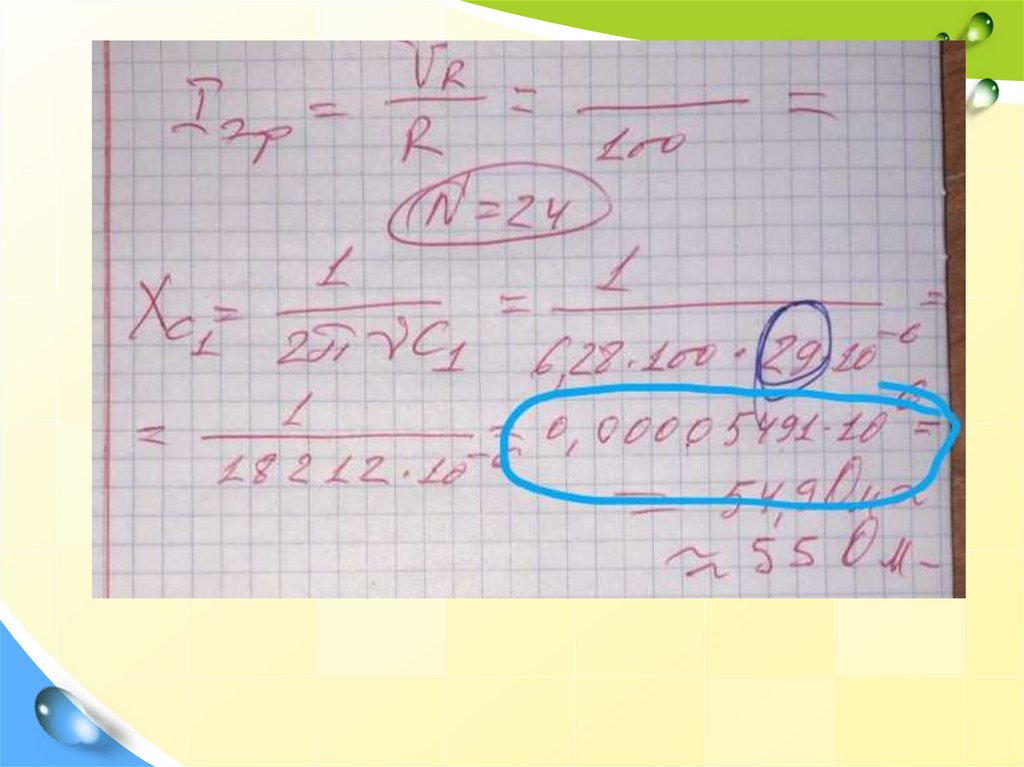 I гр = U_R / R = / 100 =
N = 24
X_C1 = 1 / 2πνC₁ = 1 / 6,28·100·29·10⁻⁶ =
= 1 / 18212·10⁻⁶ = 0,00005491·10⁶ =
= 54,9 Ом ≈
≈ 55 Ом